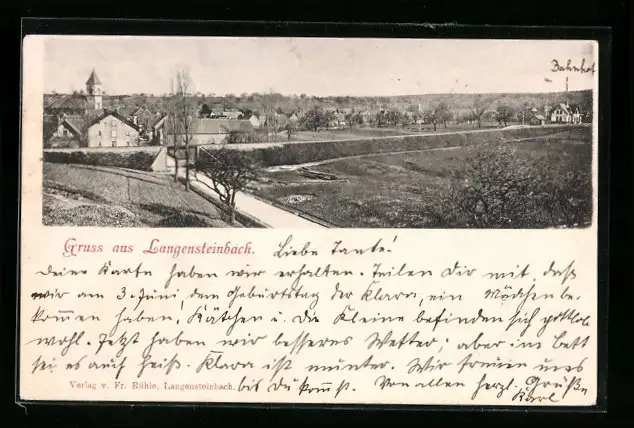 Bahnhof
Gruss aus Langensteinbach. Liebe Tante!
deine Karte haben wir erhalten. Teilen dir mit, daß
wir am 3. Juni dem Geburtstag der Klara, ein Mädchen be-
kom̅en haben. Kätchen u. die Kleine befinden sich gottlob
wohl. Jetzt haben wir besseres Wetter; aber im Bett
sei es auch heiß. Klara ist munter. Wir freuen uns
Verlag v. Fr. Rühle, Langensteinbach. bis du kom̅st. Von allen herzl. Grüße
Karl